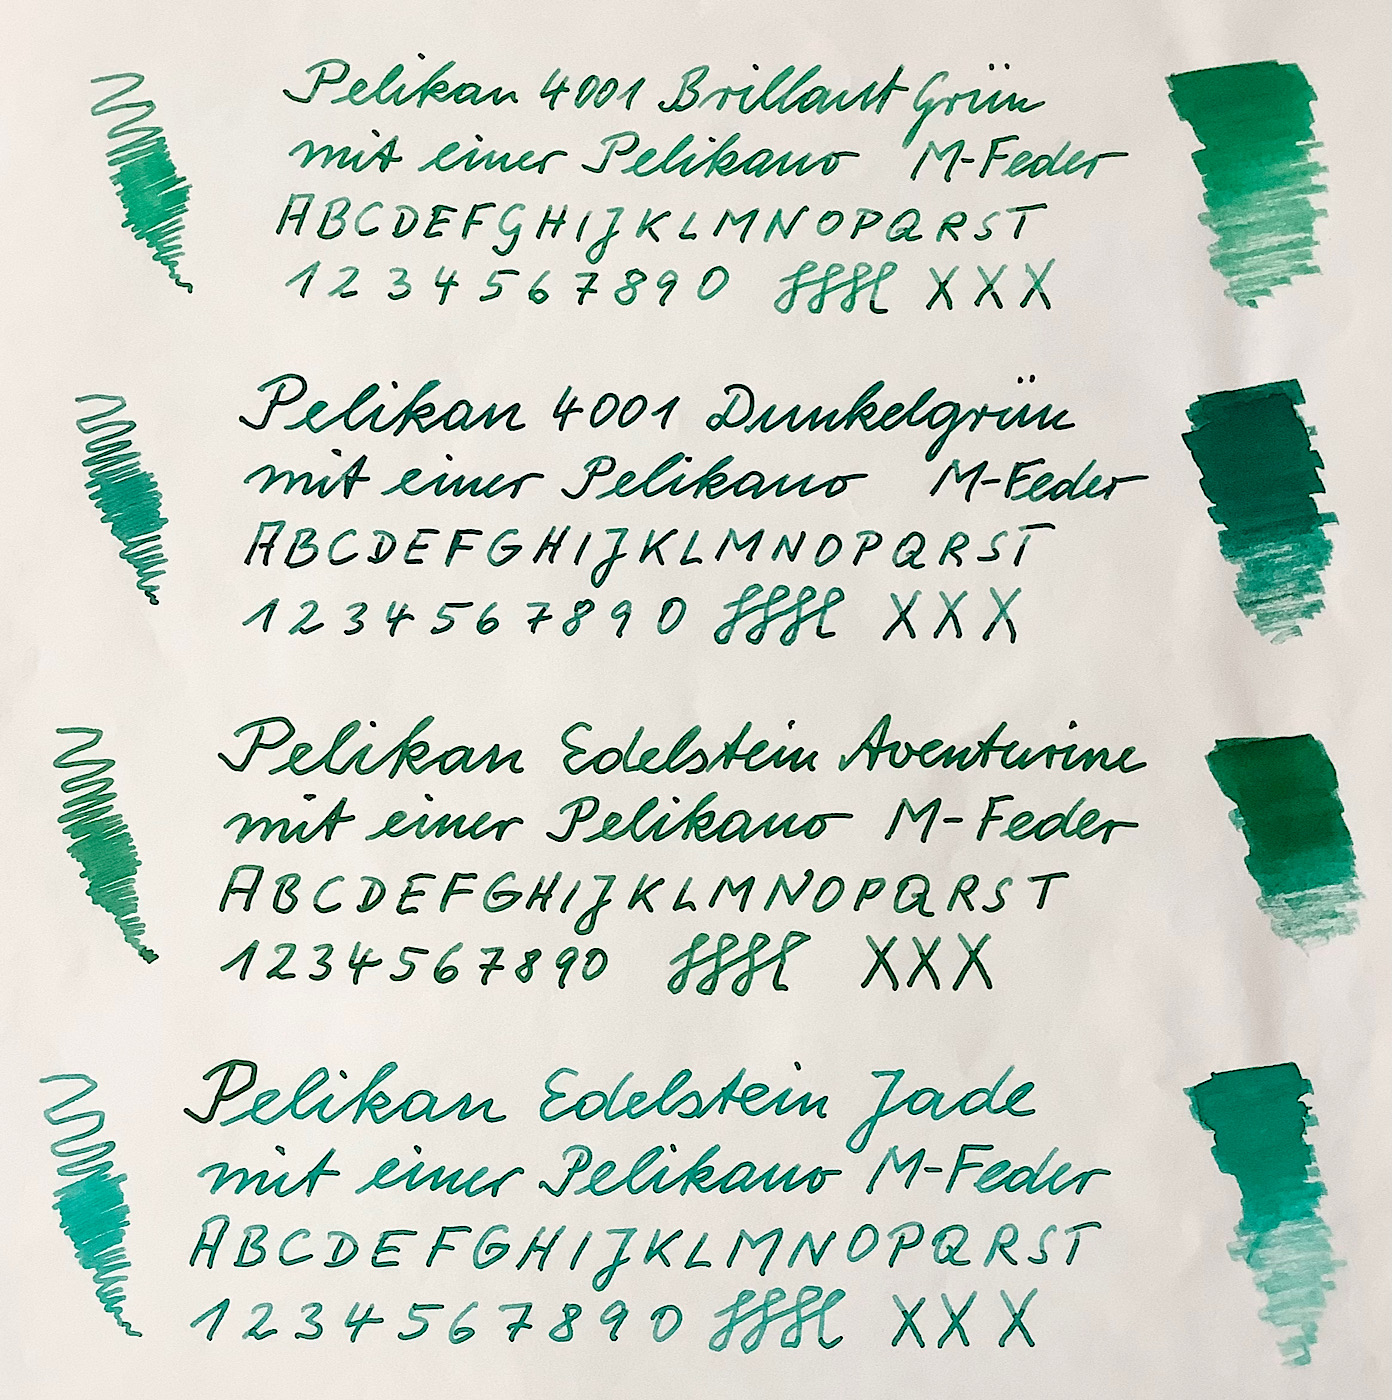 Pelikan 4001 Brillant Grün
mit einer Pelikano M-Feder
ABCDEFGHIJKLMNOPQRST
1234567890 XXX
Pelikan 4001 Dunkelgrün
mit einer Pelikano M-Feder
ABCDEFGHIJKLMNOPQRST
1234567890 XXX
Pelikan Edelstein Aventurine
mit einer Pelikano M-Feder
ABCDEFGHIJKLMNOPQRST
1234567890 XXX
Pelikan Edelstein Jade
mit einer Pelikano M-Feder
ABCDEFGHIJKLMNOPQRST
1234567890 XXX